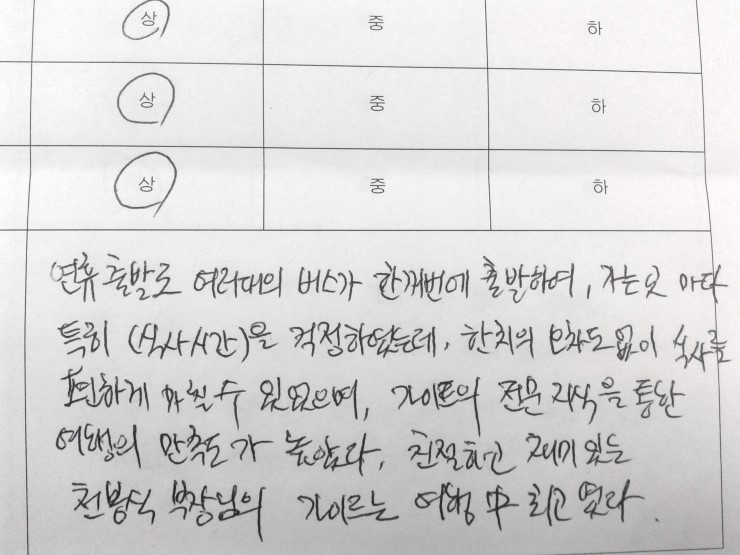 상 중 하
상 중 하
상 중 하
연휴 출발로 여러대의 버스가 한꺼번에 출발하여, 가는 곳 마다
특히 (식사시간)을 걱정하였는데, 한치의 오차도 없이 식사를
편하게 마칠 수 있었으며, 가이드의 전문 지식을 통한
여행의 만족도가 높았다, 친절하고 재미 있는
천봉식 부장님의 가이드는 여행 中 최고 였다.